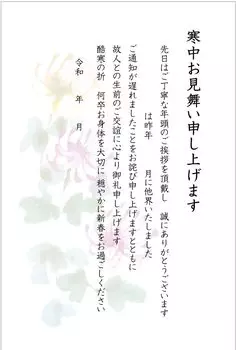 寒中お見舞い申し上げます
先日はご丁寧な年頭のご挨拶を頂戴し　誠にありがとうございます
は昨年　　月に他界いたしました
ご通知が遅れましたことをお詫び申し上げますとともに
故人との生前のご交誼に心より御礼申し上げます
酷寒の折　何卒お身体を大切に　穏やかに新春をお過ごしください
令和　　年　　月